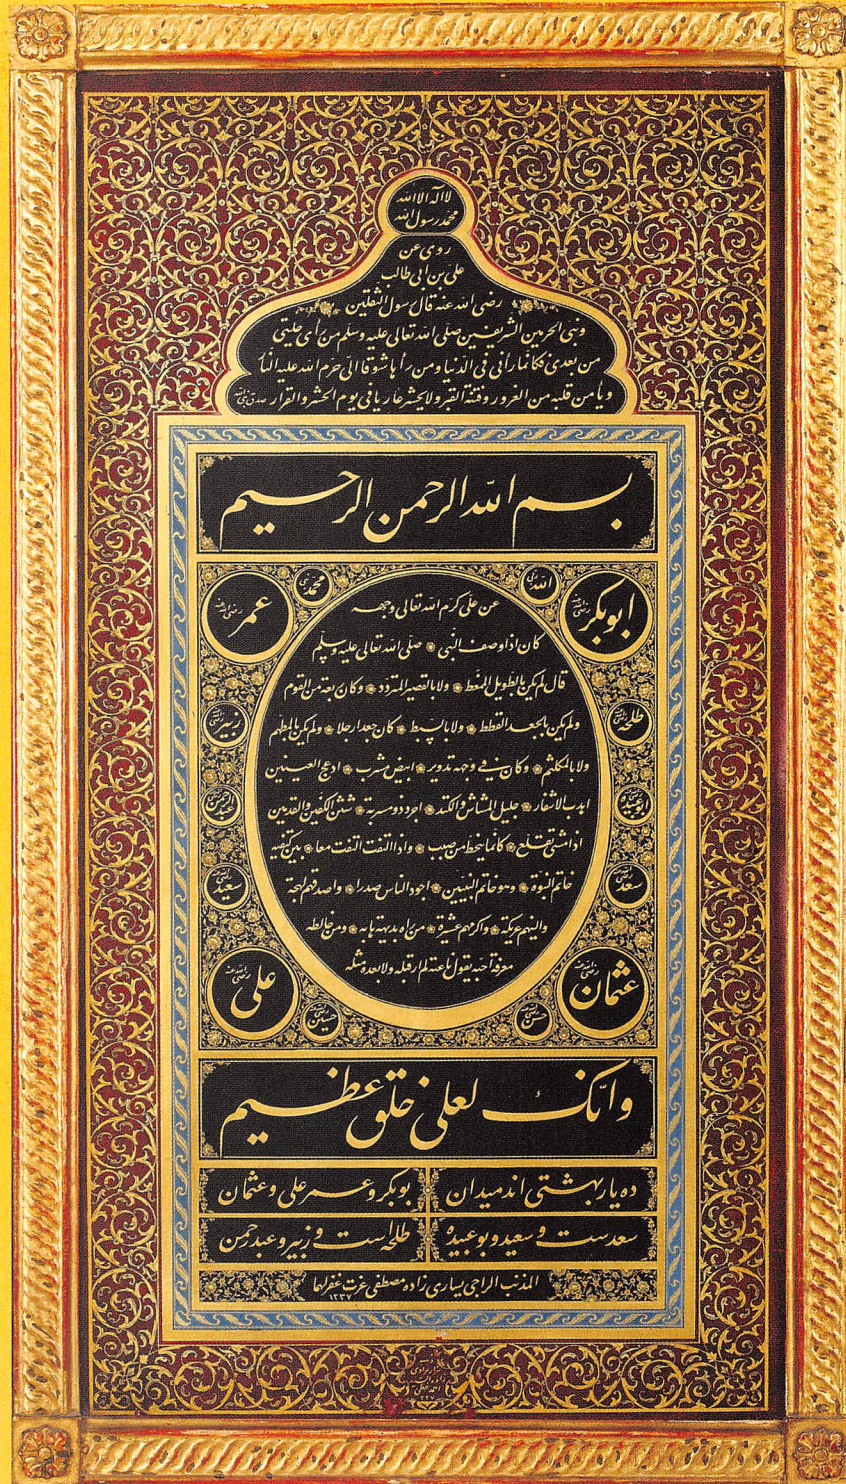 لا اله الا الله
محمد رسول الله
روى عن
على بن ابى طالب
رضى الله عنه قال رسول الثقلين
ونبى الحرمين الشريفين صلى الله تعالى عليه وسلم من رأى حليتى
من بعدى فكانما رآنى فى الدنيا ومن رأها شوقا الىّ حرم الله عليه النار
ويأمن قلبه من الغرور وفتنة القبر ولا يحشر عاريا فى يوم الحشر والقرار
بسم الله الرحمن الرحيم
الله
محمد
ابوبكر رضى الله عنه
عمر رضى الله عنه
عن على كرم الله تعالى وجهه
كان اذا وصف النبى صلى الله تعالى عليه وسلم
قال لم يكن بالطويل الممغط ولا بالقصير المتردد وكان ربعة من القوم
ولم يكن بالجعد القطط ولا بالسبط كان جعدا رجلا ولم يكن بالمطهم
ولا بالمكلثم وكان فى وجهه تدوير ابيض مشرب ادعج العينين
اهدب الاشفار جليل المشاش والكتد اجرد ذو مسربة شثن الكفين والقدمين
اذا مشى تقلع كانما ينحط من صبب واذا التفت التفت معا بين كتفيه
خاتم النبوة وهو خاتم النبيين اجود الناس صدرا واصدقهم لهجة
والينهم عريكة واكرمهم عشيرة من رآه بديهة هابه ومن خالطه
معرفة احبه يقول ناعته لم ار قبله ولا بعده مثله
طلحه
زبير
ابو عبيده
عبد الرحمن
سعد
سعيد
عثمان رضى الله عنه
على رضى الله عنه
حسن
حسين
وانك لعلى خلق عظيم
ده يار بهشتى اند ميدان بوبكر و عمر على و عثمان
سعدست و سعيد و بوعبيده طلحه است و زبير و عبد رحمن
المذنب الراجى يسارى زاده مصطفى عزت غفر لهما
١٢٣٧